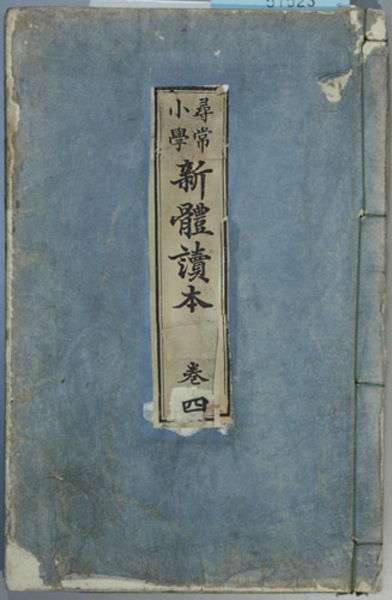 尋常
小學
新體讀本
卷四
57523